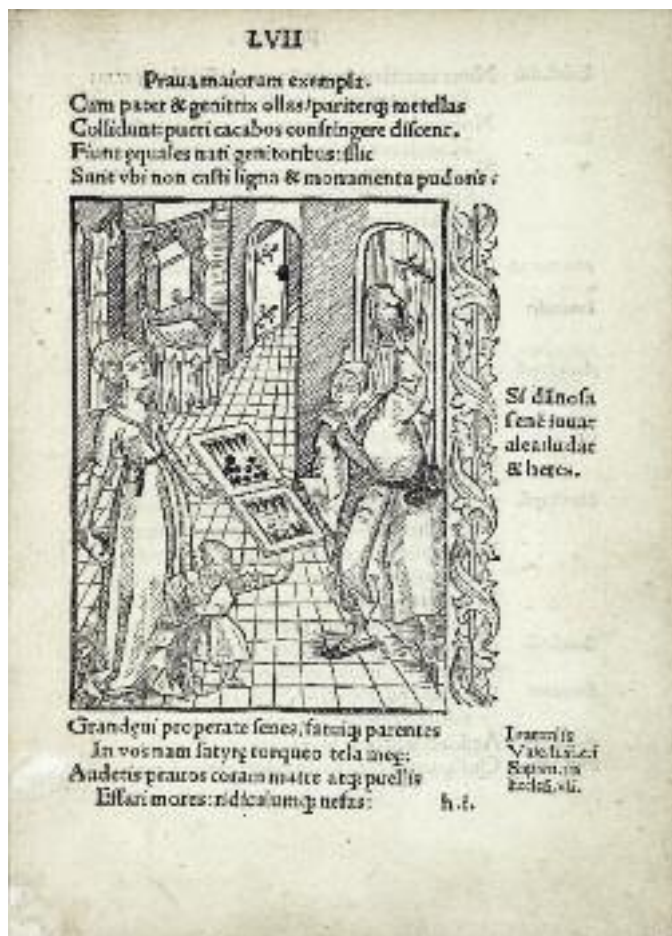 LVII
Praua maiorum exempla.
Cum pater & genitrix ollas/pariterq; metellas
Collidunt: pueri cacabos confringere discunt.
Fiunt ęquales nati genitoribus: illic
Sunt vbi non casti ligna & monumenta pudoris:
Si dãnosa
senẽ iuuat
alea: ludat
& heres.
Grandęui properate senes, fatuiq; parentes
In vos nam satyrę torqueo tela meę:
Audetis prauos coram matre atq; puellis
Effari mores: ridiculumq; nefas:
h.i.